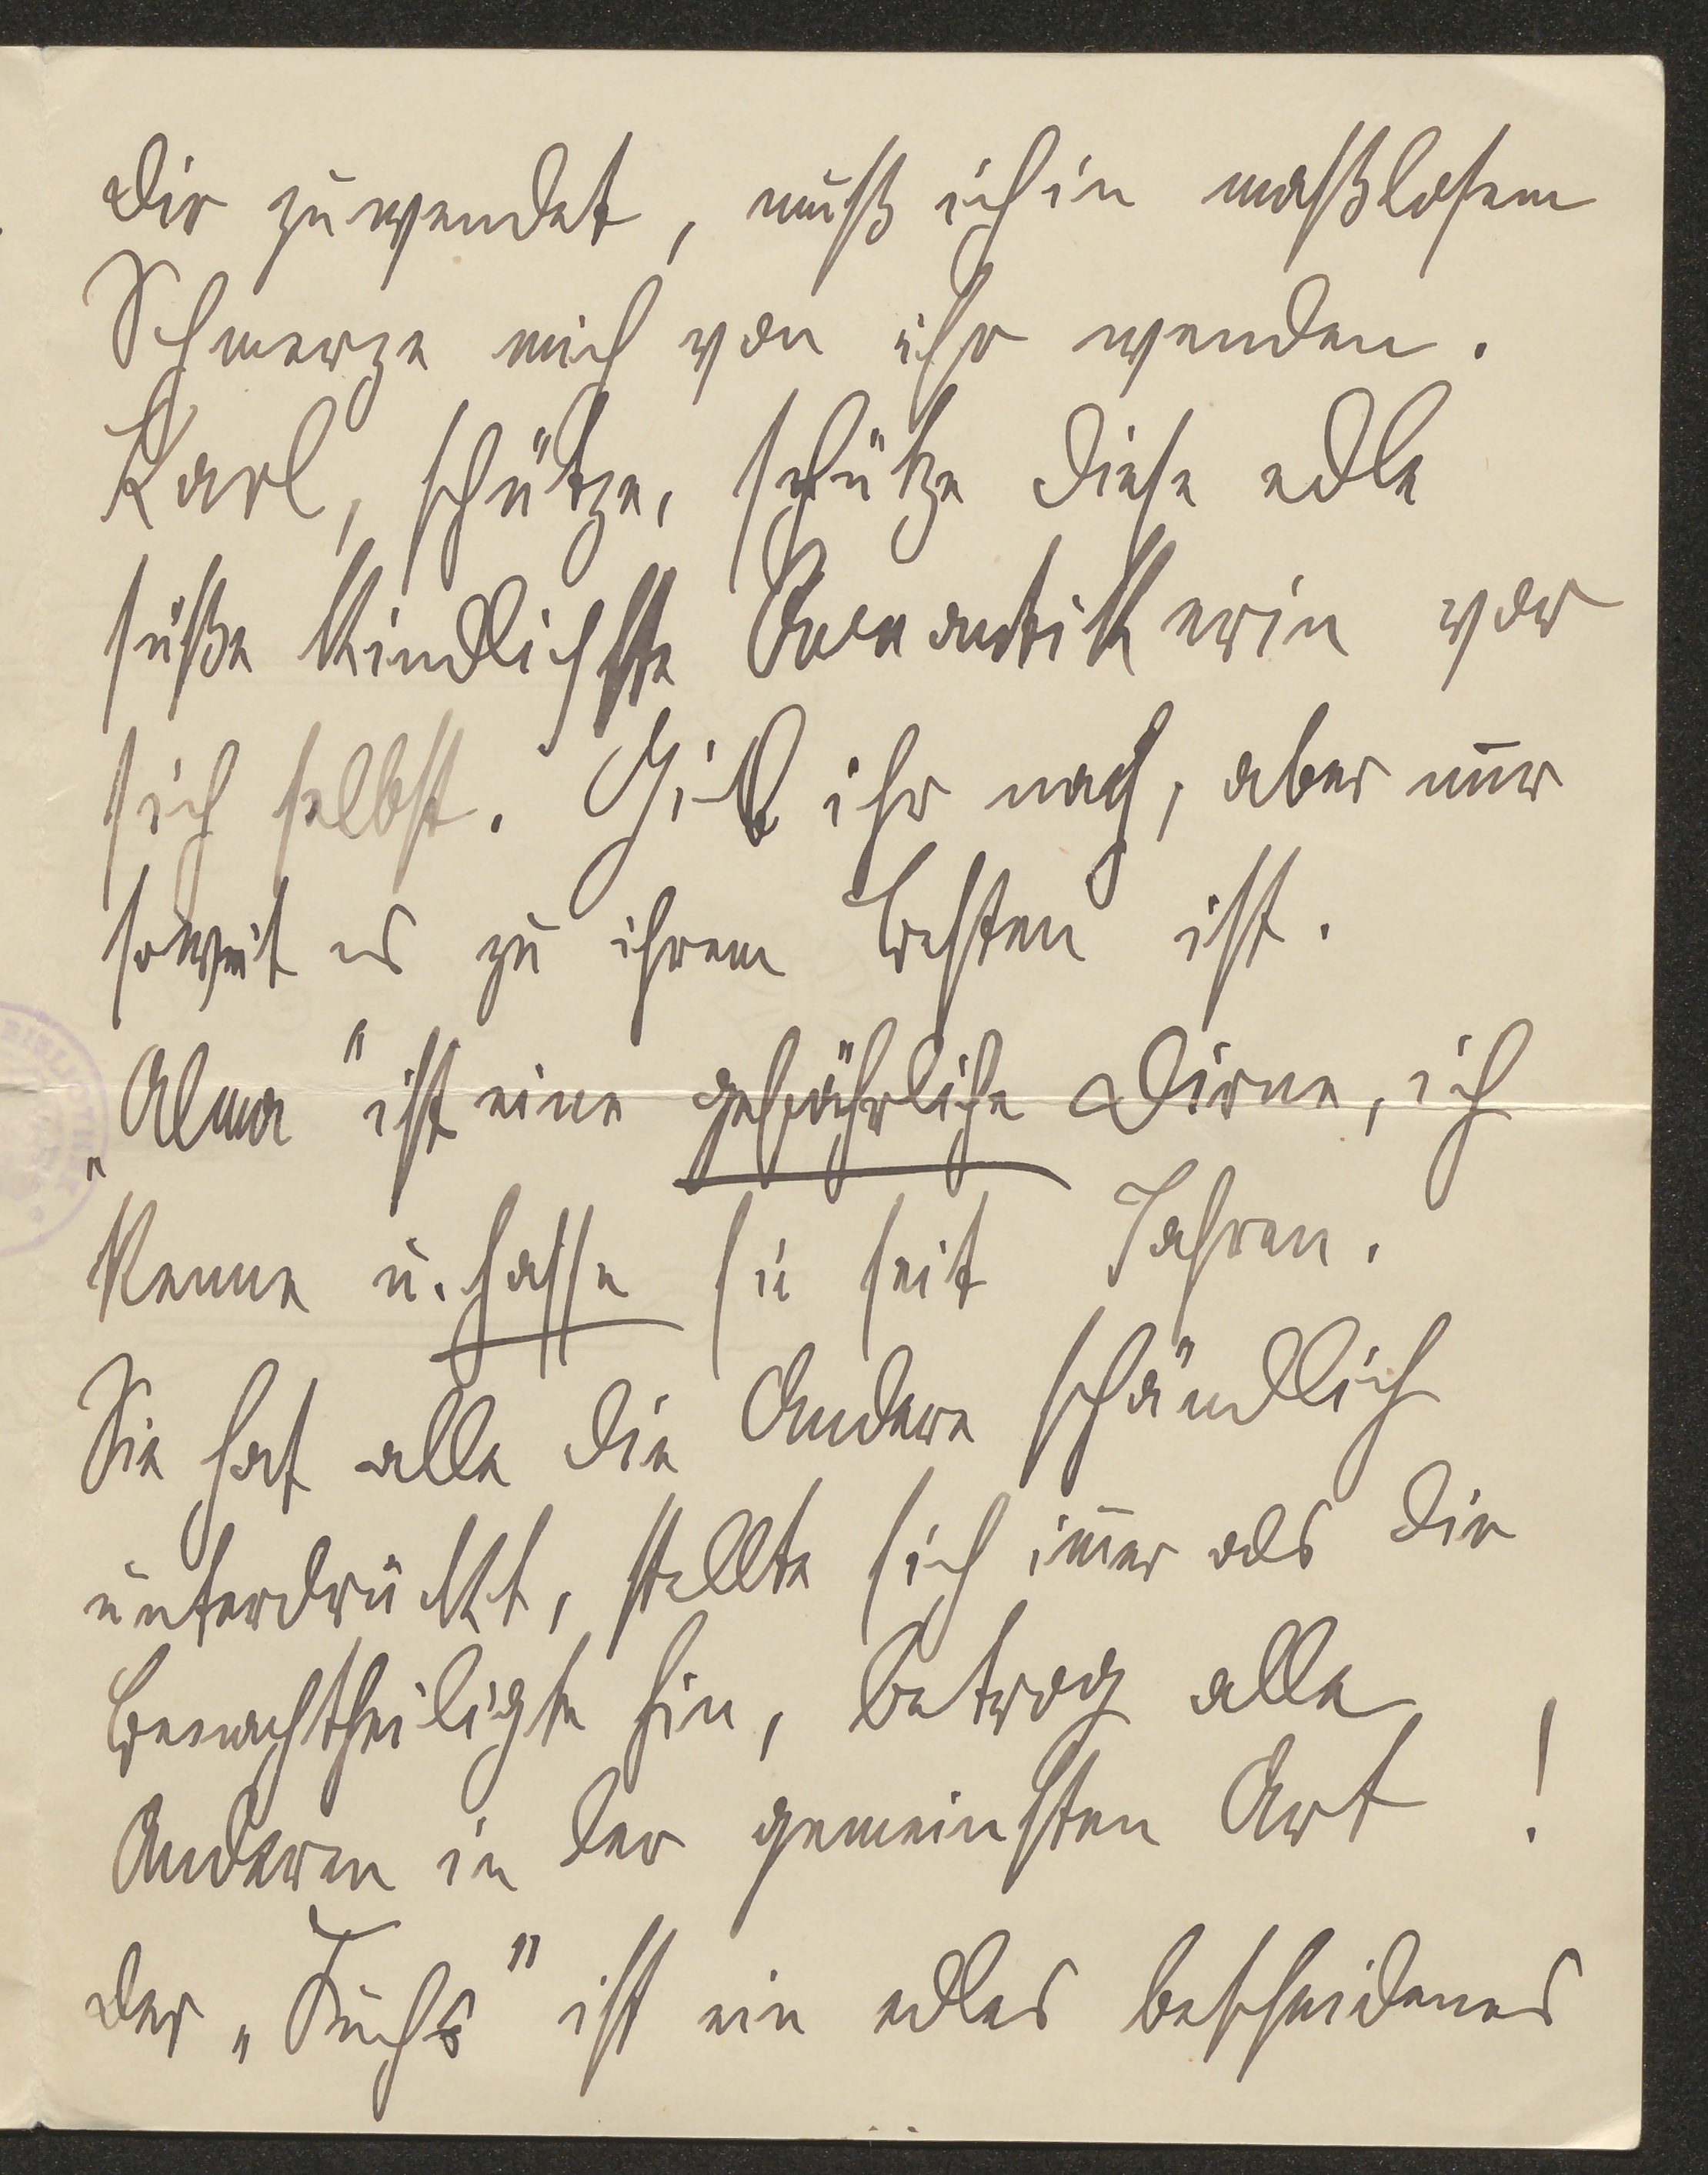 Dir zuwendet, muß ich in maßlosem
Schmerze mich von ihr wenden.
Karl, schütze, schütze diese edle
süße kindlichste Romantikerin vor
sich selbst. Gib ihr nach, aber nur̄
soweit es zu ihrem Besten ist.
„Alma" ist eine gefährliche Dirne, ich
kenne u. hasse sie seit Jahren.
Sie hat alle die Andere schändlich
unterdrückt, stellte sich im̄er als die
Benachtheiligte hin, betrog alle
Anderen in der gemeinsten Art!
Der „Fuchs" ist ein edles bescheidenes